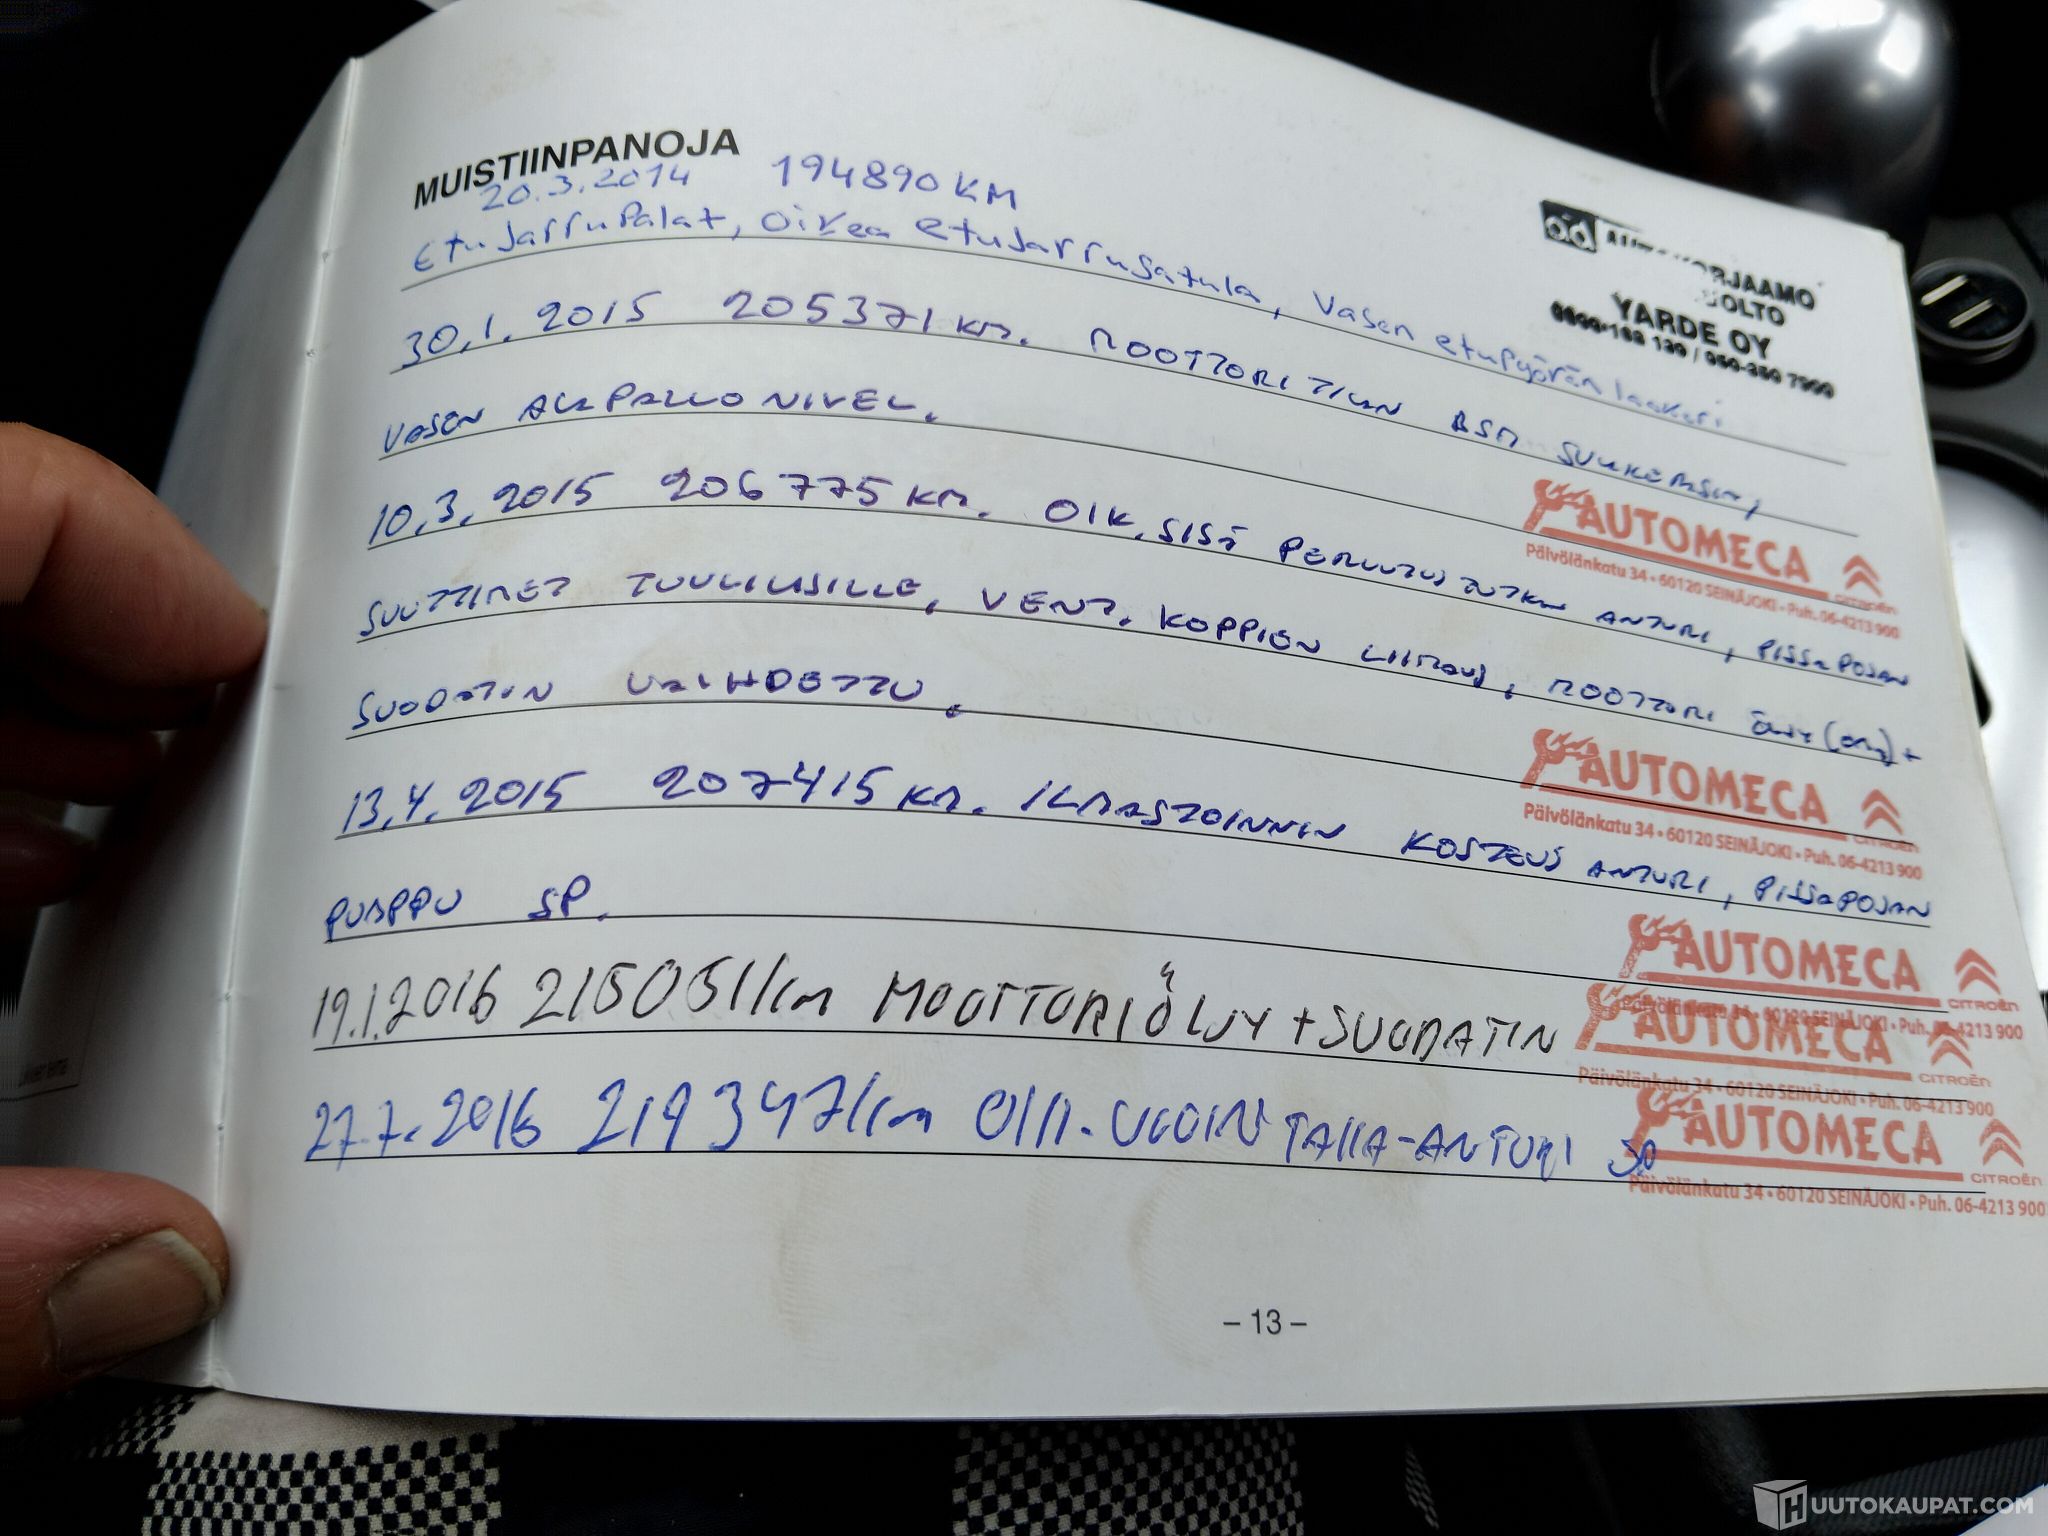 MUISTIINPANOJA
20.3.2014 194890 KM
Etujarrupalat, oikea etujarrusatula, Vasen etupyörän laakeri
AUTOKORJAAMO
YARDE OY
30.1.2015 205371 KM. MOOTTORITILAN BSM SULAKERASIA,
VASEN ALAPALLONIVEL.
AUTOMECA
Päivölänkatu 34 • 60120 SEINÄJOKI • Puh. 06-4213 900
CITROËN
10.3.2015 206775 KM. OIK. SISÄ PERUUTUSTUTKAN ANTURI, PISSAPOJAN
SUUTTIMET TUULILASILLE, VENT. KOPPIEN LIITOUS, MOOTTORI ÖLJY +
SUODATIN VAIHDETTU.
AUTOMECA
Päivölänkatu 34 • 60120 SEINÄJOKI • Puh. 06-4213 900
CITROËN
13.4.2015 207415 KM. ILMASTOINNIN KOSTEUS ANTURI, PISSAPOJAN
PUMPPU SP.
AUTOMECA
CITROËN
Päivölänkatu 34 • 60120 SEINÄJOKI • Puh. 06-4213 900
19.1.2016 215051 km MOOTTORIÖLJY + SUODATIN
AUTOMECA
CITROËN
Päivölänkatu 34 • 60120 SEINÄJOKI • Puh. 06-4213 900
27.7.2016 219347 km OIK. ULOIN TAKA-ANTURI SP
AUTOMECA
CITROËN
Päivölänkatu 34 • 60120 SEINÄJOKI • Puh. 06-4213 900
– 13 –
HUUTOKAUPAT.COM